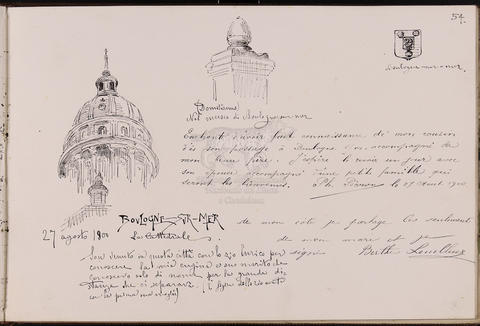 54.
Boulogne-sur-mer.
Nel museo di Boulogne-sur-mer
Enchanté d'avoir fait connaissance de mon cousin
à son passage à Boulogne accompagné de
mon beau père. J'espère le revoir un jour avec
son épouse accompagné d'une petite famille qui
seront les bienvenus. Ph.
BOULOGNE-SUR-MER
27 agosto 1900 La Cattedrale.
de mon côté je partage les sentiments
de mon mari et je
signe Berthe
Son venuto in questa città con lo zio Enrico per
conoscere la mia cugina e suo marito che
conoscevo solo di nome per la grande di-
stanza che ci separava.